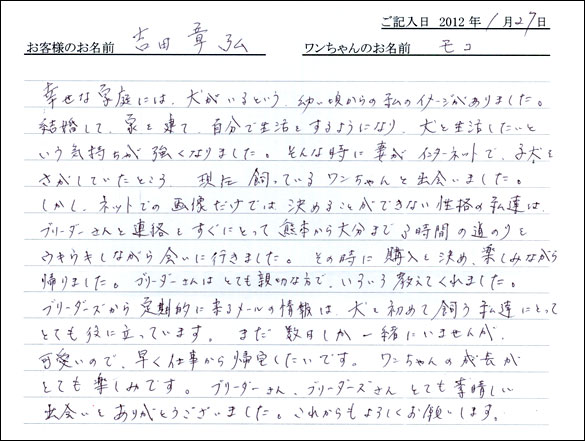 ご記入日 2012 年 1 月 27 日
お客様のお名前 吉田 章弘 ワンちゃんのお名前 モコ
幸せな家庭には、犬がいるという、幼い頃からの私のイメージがありました。
結婚して、家を建て、自分で生活をするようになり、犬と生活したいと
いう気持ちが強くなりました。そんな時に妻がインターネットで、子犬を
さがしていたところ 現在飼っているワンちゃんと出会いました。
しかし、ネットでの画像だけでは決めることができない性格の私達は、
ブリーダーさんと連絡をすぐにとって熊本から大分まで3時間の道のりを
ウキウキしながら会いに行きました。その時に購入を決め、楽しみながら
帰りました。ブリーダーさんはとても親切な方で、いろいろ教えてくれました。
ブリーダーズから定期的に来るメールの情報は、犬を初めて飼う私達にとって
とても役に立っています。まだ数日しか一緒にいませんが、
可愛いので、早く仕事から帰宅したいです。ワンちゃんの成長が
とても楽しみです。ブリーダーさん、ブリーダーズさん とても素晴しい
出会いをありがとうございました。これからもよろしくお願いします。